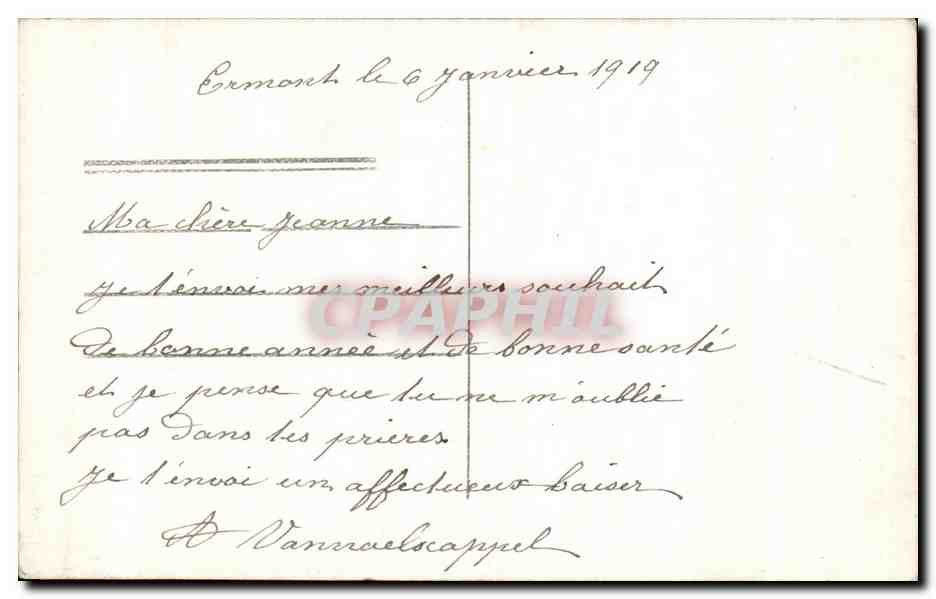 Ermont le 6 Janvier 1919
Ma chère Jeanne
Je t'envoi mes meilleurs souhait
CPAPHIL
de bonne année et de bonne santé
et je pense que tu ne m'oublie
pas dans tes prieres.
Je t'envoi un affectueux baiser
A Vannaelscappel